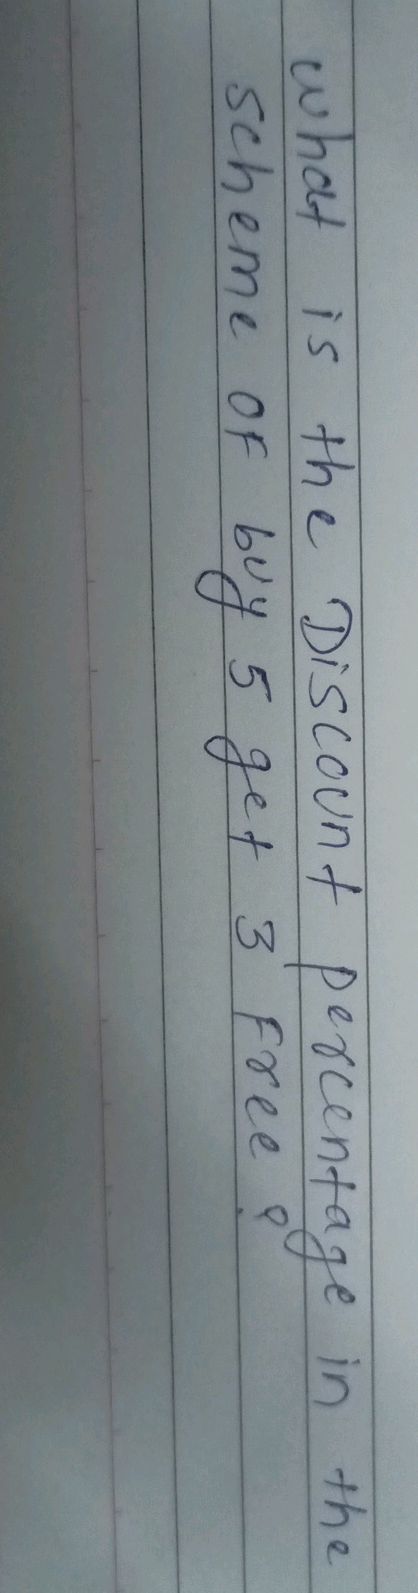 what is the Discount percentage in the
scheme OF buy 5 get 3 Free ?